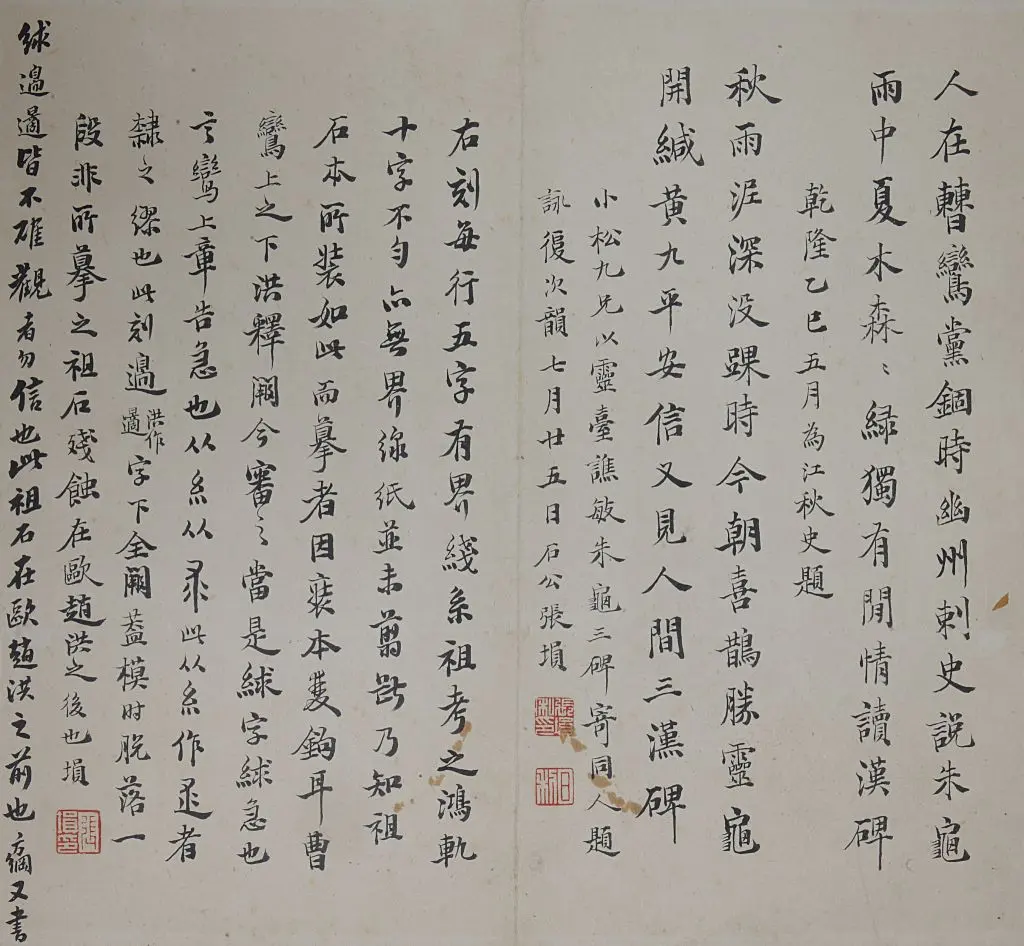 人在轊鸞黨錮時幽州刺史說朱龜
雨中夏木森〻綠獨有閒情讀漢碑
乾隆乙巳五月為江秋史題
秋雨泥深没踝時今朝喜鵲勝靈龜
開緘黃九平安信又見人間三漢碑
小松九兄以靈臺譙敏朱龜三碑寄同人題
詠復次韻七月廿五日石公張塤
右刻每行五字有界綫系祖考之鴻軌
十字不勻亦無界線紙並未翦斷乃知祖
石本所裝如此而摹者因裝本雙鉤耳曹
鸞上之下洪釋闕今審之當是絿字絿急也
言鸞上章告急也从糸从求此从糸作逑者
隸之繆也此刻邊洪作邁字下全闕蓋模時脫落一
段非所摹之祖石殘蝕在歐趙洪之後也塤
絿邊邁皆不確觀者勿信也此祖石在歐趙洪之前也 又書